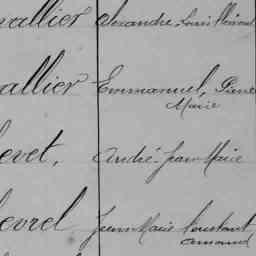 vallier Alexandre Louis
allier Emmanuel, Pierre
Marie
evet, André Jean Marie
evrel Jean Marie Constant
Armand